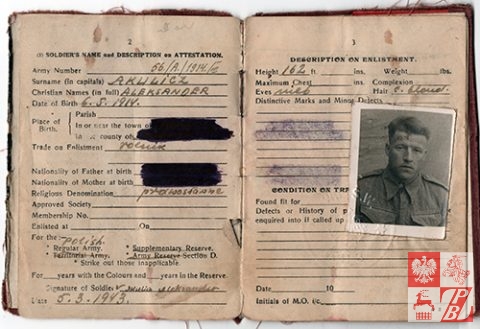 2
(I) SOLDIER'S NAME and DESCRIPTION on ATTESTATION.
Army Number 56/A/1914/
Surname (in capitals) AKULICZ
Christian Names (in full) ALEKSANDER
Date of Birth 6.5.1914.
Place of Birth.
Parish
In or near the town of
In county of
Trade on Enlistment rolnik
Nationality of Father at birth
Nationality of Mother at birth
Religious Denomination prawosławne
Approved Society
Membership No.
Enlisted at On
For the Polish.
* Regular Army. * Supplementary Reserve.
* Territorial Army. * Army Reserve Section D.
* Strike out those inapplicable.
For years with the Colours and years in the Reserve.
Signature of Soldier Aleksander
Date 5.3.1943.
3
DESCRIPTION ON ENLISTMENT.
Height 162 ft. ins. Weight lbs.
Maximum Chest ins. Complexion
Eyes Hair c. blond.
Distinctive Marks and Minor Defects
CONDITION ON TR
Found fit for
Defects or History of p
enquired into if called up
Date 19
Initials of M.O. i/c
PB